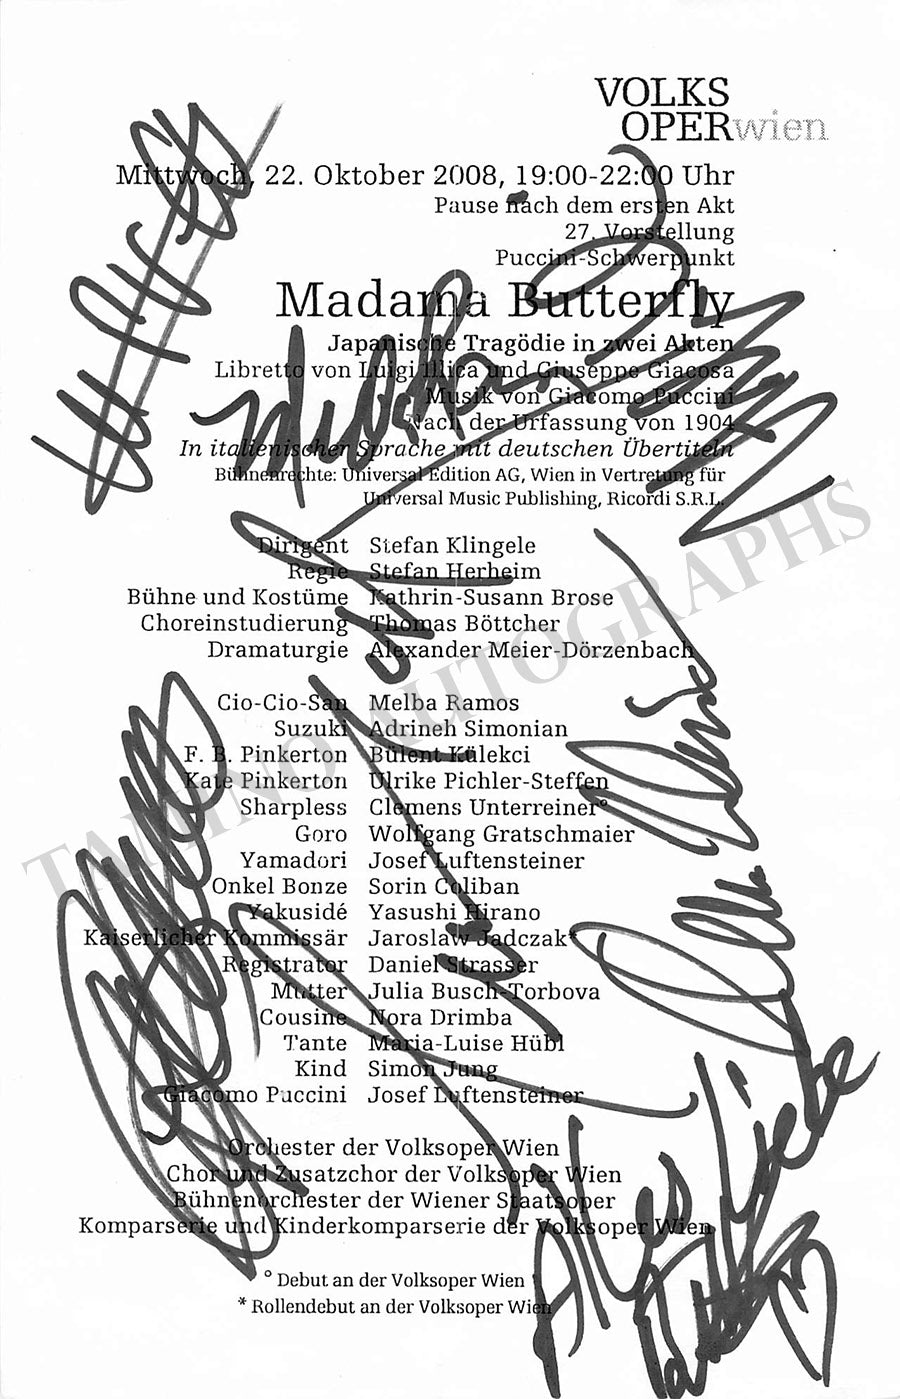 VOLKS
OPERwien
Mittwoch, 22. Oktober 2008, 19:00-22:00 Uhr
Pause nach dem ersten Akt
27. Vorstellung
Puccini-Schwerpunkt
Madama Butterfly
Japanische Tragödie in zwei Akten
Libretto von Luigi Illica und Giuseppe Giacosa
Musik von Giacomo Puccini
Nach der Urfassung von 1904
In italienischer Sprache mit deutschen Übertiteln
Bühnenrechte: Universal Edition AG, Wien in Vertretung für
Universal Music Publishing, Ricordi S.R.L.
Dirigent Stefan Klingele
Regie Stefan Herheim
Bühne und Kostüme Kathrin-Susann Brose
Choreinstudierung Thomas Böttcher
Dramaturgie Alexander Meier-Dörzenbach
Cio-Cio-San Melba Ramos
Suzuki Adrineh Simonian
F. B. Pinkerton Bülent Külekci
Kate Pinkerton Ulrike Pichler-Steffen
Sharpless Clemens Unterreiner°
Goro Wolfgang Gratschmaier
Yamadori Josef Luftensteiner
Onkel Bonze Sorin Coliban
Yakusidé Yasushi Hirano
Kaiserlicher Kommissär Jaroslaw Jadczak*
Registrator Daniel Strasser
Mutter Julia Busch-Torbova
Cousine Nora Drimba
Tante Maria-Luise Hübl
Kind Simon Jung
Giacomo Puccini Josef Luftensteiner
Orchester der Volksoper Wien
Chor und Zusatzchor der Volksoper Wien
Bühnenorchester der Wiener Staatsoper
Komparserie und Kinderkomparserie der Volksoper Wien
° Debut an der Volksoper Wien
* Rollendebut an der Volksoper Wien
Alles Liebe
TAMINO AUTOGRAPHS